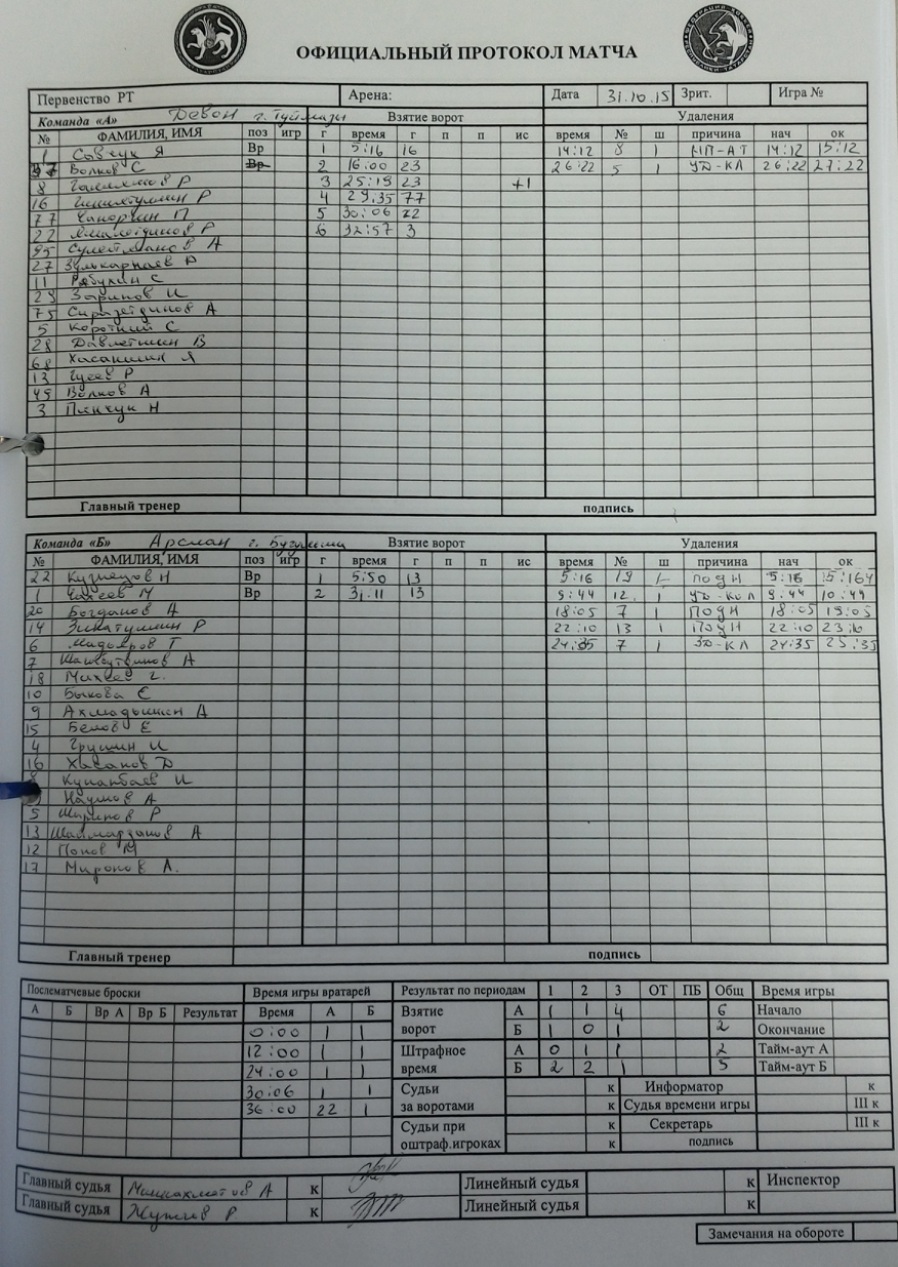 ОФИЦИАЛЬНЫЙ ПРОТОКОЛ МАТЧА
Первенство РТ Арена: Дата 31.10.15 Зрит. Игра №
Команда «А» Девон г. Туймазы Взятие ворот Удаления
№ ФАМИЛИЯ, ИМЯ поз игр г время г п п ис время № ш причина нач ок
1 Савчук Я Вр 1 5:16 16 14:12 8 1 14:12 15:12
Волков С Вр 2 16:00 23 26:22 5 1 УД-КЛ 26:22 27:22
8 Р 3 25:19 23 +1
16 Р 4 29:35 77
77 П 5 30:06 22
22 Р 6 32:57 3
95 Сулейманов А
27 Зулькарнаев А
11 Рябухин С
29 Зарипов И
75 Сиразетдинов А
5 Короткий С
28 Давлетшин В
68 Хасаншин Я
13 Гусев Р
49 Волков А
3 Пинчук Н
Главный тренер подпись
Команда «Б» Арслан г. Бугульма Взятие ворот Удаления
№ ФАМИЛИЯ, ИМЯ поз игр г время г п п ис время № ш причина нач ок
22 Кузнецов Н Вр 1 5:50 13 5:16 19 1 ПОДН 5:16
1 М Вр 2 31:11 13 9:44 12 1 9:44 10:44
20 Богданов А 18:05 7 1 ПОДН 18:05 19:05
14 Зинатуллин Р 22:10 13 1 ПОДН 22:10
6 Т 24:35 7 1 24:35
7 А
18 Михеев Г.
10 Быкова Е
9 Ахмадышин А
15 Белов Е
4 Гришин И
16 Хасанов Д
Кунанбаев И
Наумов А
5 Ширипов Р
13 Шаймарданов А
12 Попов М
17 Миронов А.
Главный тренер подпись
Послематчевые броски Время игры вратарей Результат по периодам 1 2 3 ОТ ПБ Общ Время игры
А Б Вр А Вр Б Результат Время А Б Взятие ворот А 1 1 4 6 Начало
0:00 1 1 Б 1 0 1 2 Окончание
12:00 1 1 Штрафное время А 0 1 1 2 Тайм-аут А
24:00 1 1 Б 2 2 1 5 Тайм-аут Б
30:06 1 1 Судьи за воротами к Информатор к
36:00 22 1 к Судья времени игры III к
Судьи при оштраф.игроках к Секретарь III к
к подпись
Главный судья А к Линейный судья к Инспектор
Главный судья Р к Линейный судья к
Замечания на обороте